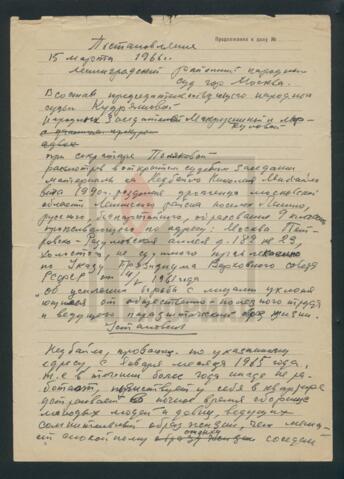 Продолжение к делу №
Постановление
15 марта 1966 г.
Ленинградский районный народный
суд гор Москва.
В составе председательствующего народного
судьи Кудрявцевой
народных заседателей и
при секретаре
рассмотрев в открытом судебном заседании
материалы на Недбайло Михайло
вича 1940 г. рождения, уроженца московской
области Ленинского района
русского, беспартийного, образование 9 классов
проживающего по адресу: Москва Пет
ровско-Разумовская аллея д. 182 кв 23,
холостого, не судимого
по Указу Президиума Верховного совета
РСФСР от 1961 года
"Об усилении борьбы с лицами уклоня
ющихся от общественно полезного труда
и ведущего паразитический образ жизни.
Установил
Недбайло, проживая по указанному
адресу, с января месяца 1965 года,
т. е в течении более года нигде не ра-
ботает, у себя в квартире
устраивает в ночное время сборище
молодых людей и девиц, ведущих
сомнительный образ жизни, чем меша-
ет спокойному отдыху соседей